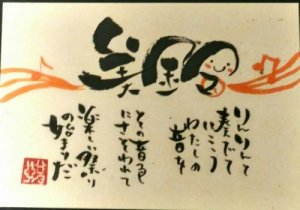 美鈴
りんりんと
奏でて
いこう
わたしの
音を
その音色
にさそわれて
楽しい祭り
の始まりだ